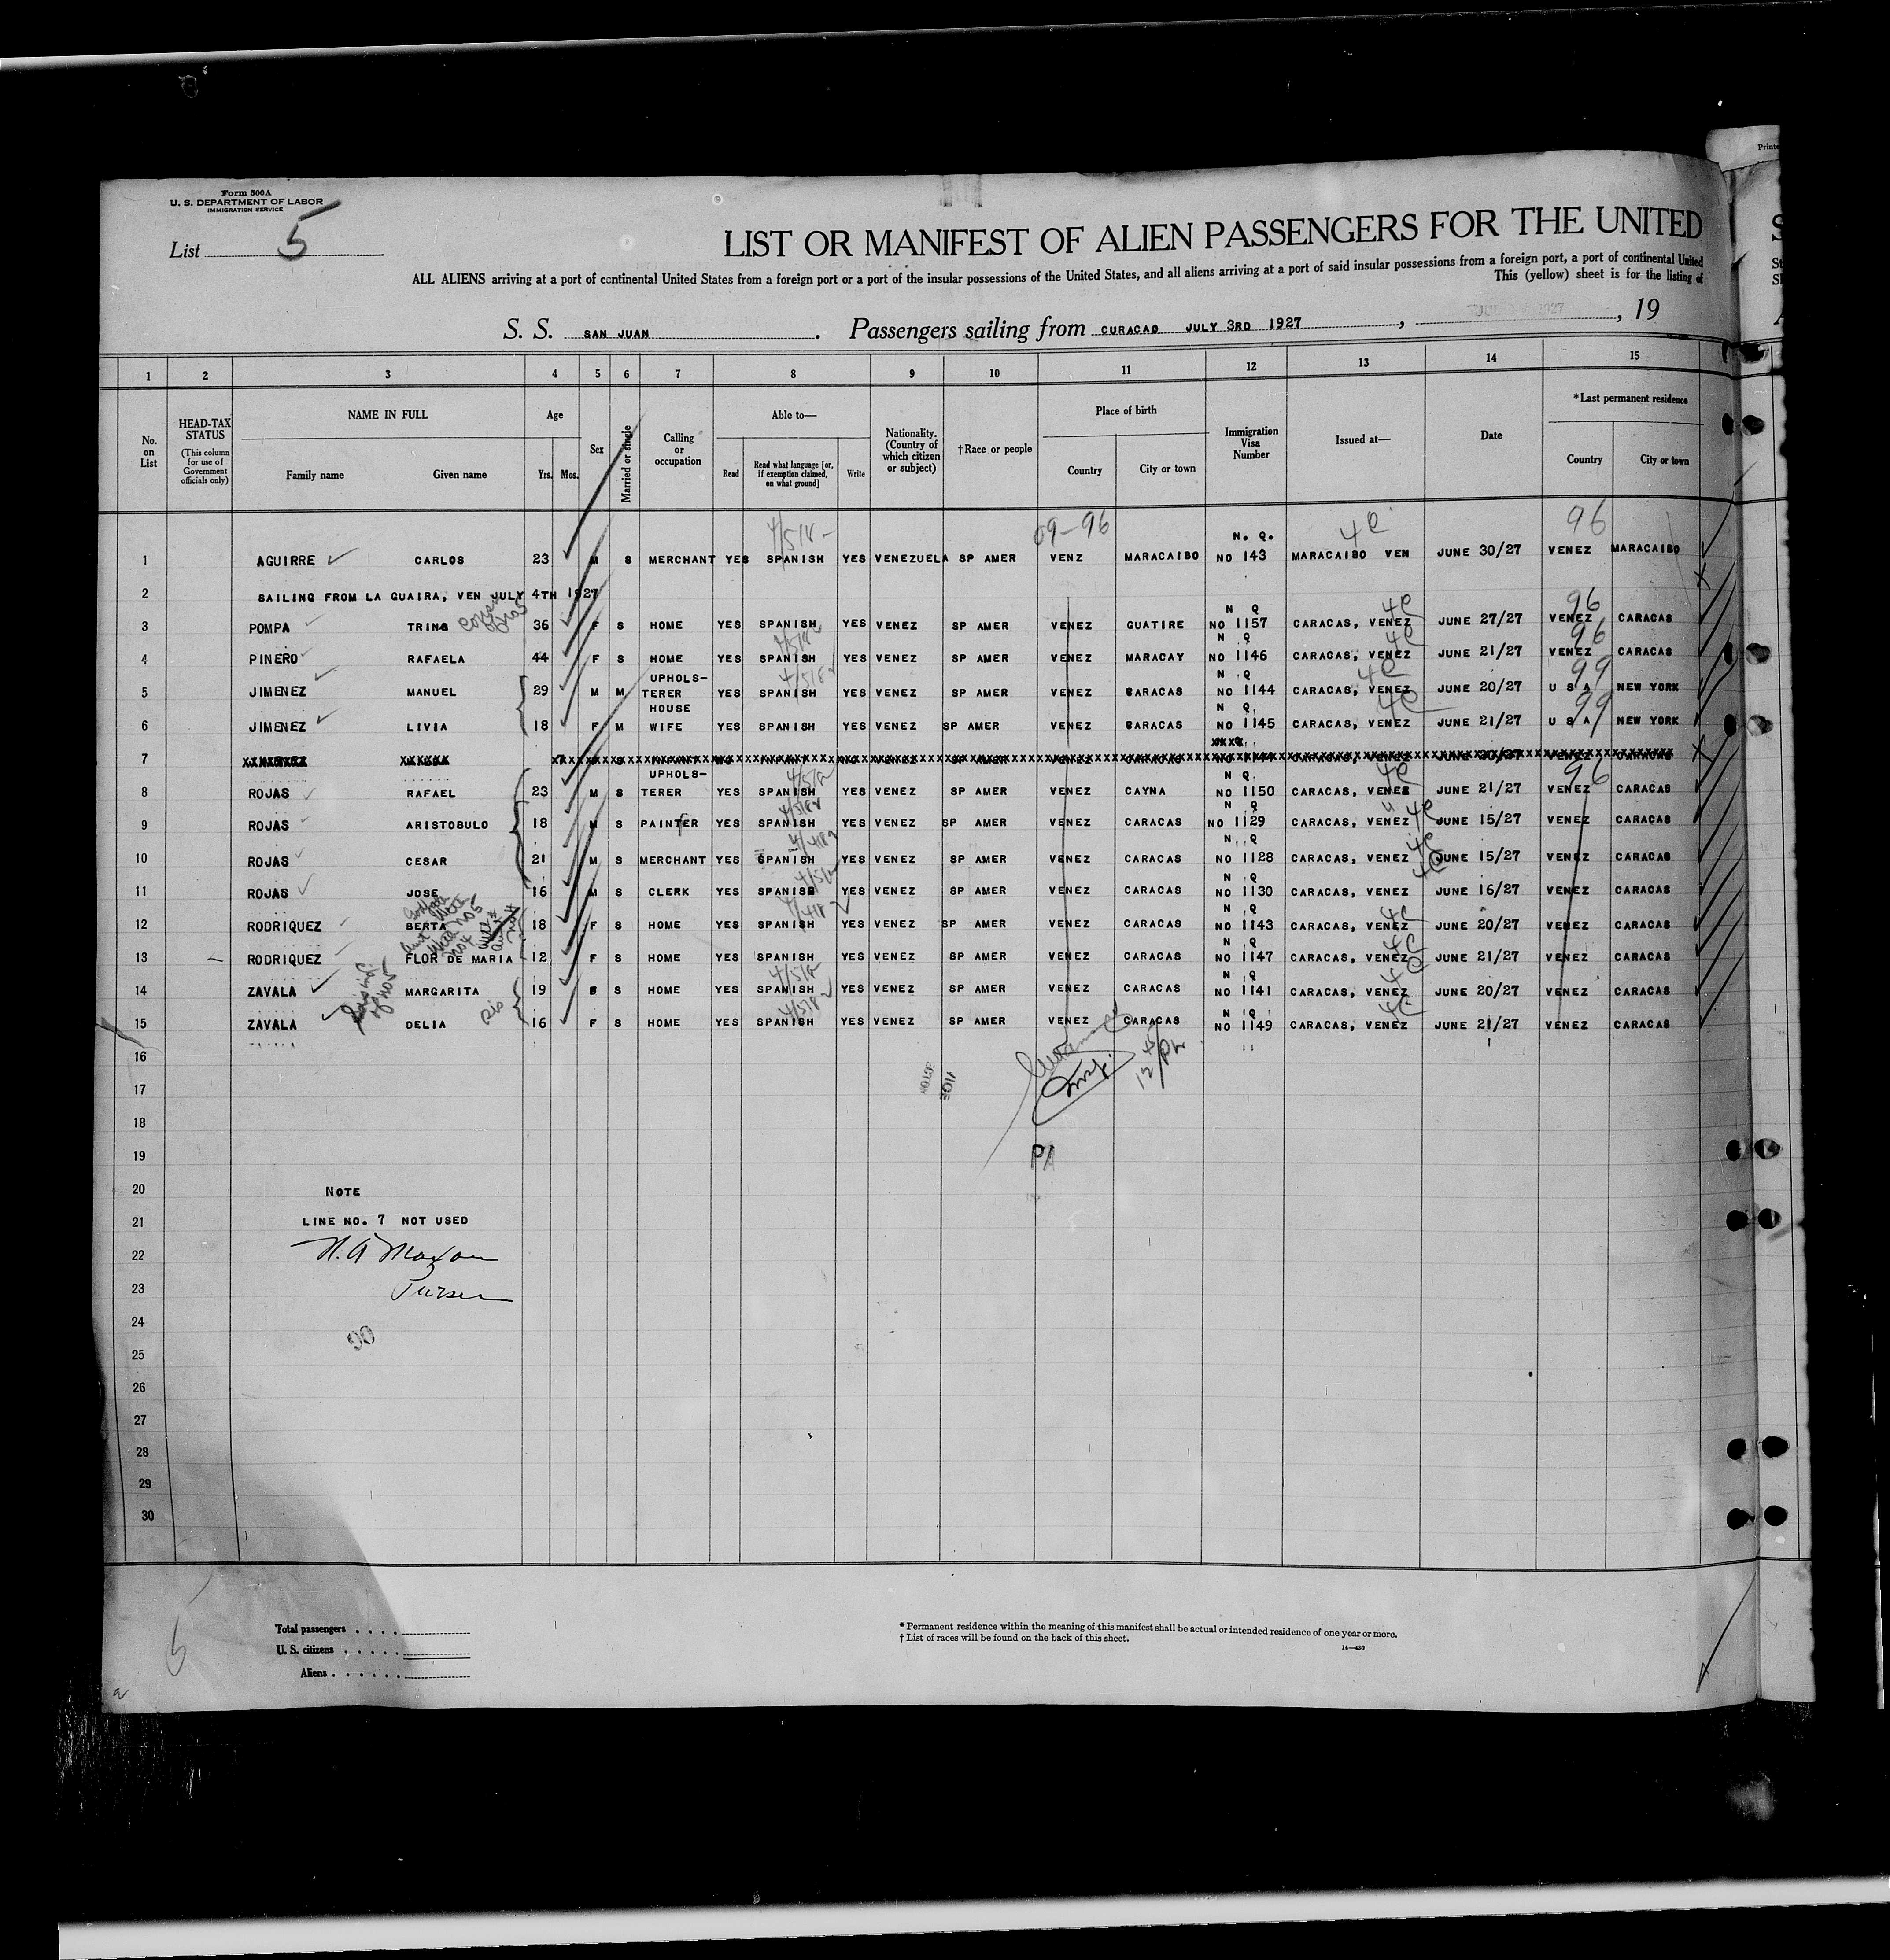 Printe
Form 500A
U. S. DEPARTMENT OF LABOR
IMMIGRATION SERVICE
List 5
LIST OR MANIFEST OF ALIEN PASSENGERS FOR THE UNITED
ALL ALIENS arriving at a port of continental United States from a foreign port or a port of the insular possessions of the United States, and all aliens arriving at a port of said insular possessions from a foreign port, a port of continental United
This (yellow) sheet is for the listing of
S. S. SAN JUAN. Passengers sailing from CURACAO JULY 3RD 1927, , 19
1 2 3 4 5 6 7 8 9 10 11 12 13 14 15
No. on List
HEAD-TAX STATUS
(This column for use of Government officials only)
NAME IN FULL
Family name Given name
Age
Yrs. Mos.
Sex
Married or single
Calling or occupation
Able to—
Read
Read what language [or, if exemption claimed, on what ground]
Write
Nationality. (Country of which citizen or subject)
†Race or people
Place of birth
Country City or town
Immigration Visa Number
Issued at—
Date
*Last permanent residence
Country City or town
09-96 4C 96
N. Q.
1 AGUIRRE CARLOS 23 M S MERCHANT YES SPANISH YES VENEZUELA SP AMER VENZ MARACAIBO NO 143 MARACAIBO VEN JUNE 30/27 VENEZ MARACAIBO
2 SAILING FROM LA GUAIRA, VEN JULY 4TH 1927
N Q 4C 96
3 POMPA TRINO 36 F S HOME YES SPANISH YES VENEZ SP AMER VENEZ GUATIRE NO 1157 CARACAS, VENEZ JUNE 27/27 VENEZ CARACAS
N Q 4C 96
4 PINERO RAFAELA 44 F S HOME YES SPANISH YES VENEZ SP AMER VENEZ MARACAY NO 1146 CARACAS, VENEZ JUNE 21/27 VENEZ CARACAS
UPHOLS- N Q 4C 99
5 JIMENEZ MANUEL 29 M M TERER YES SPANISH YES VENEZ SP AMER VENEZ CARACAS NO 1144 CARACAS, VENEZ JUNE 20/27 U S A NEW YORK
HOUSE N Q 4C 99
6 JIMENEZ LIVIA 18 F M WIFE YES SPANISH YES VENEZ SP AMER VENEZ CARACAS NO 1145 CARACAS, VENEZ JUNE 21/27 U S A NEW YORK
7
UPHOLS- N Q 4C 96
8 ROJAS RAFAEL 23 M S TERER YES SPANISH YES VENEZ SP AMER VENEZ CAYNA NO 1150 CARACAS, VENEZ JUNE 21/27 VENEZ CARACAS
N Q 4C
9 ROJAS ARISTOBULO 18 M S PAINTER YES SPANISH YES VENEZ SP AMER VENEZ CARACAS NO 1129 CARACAS, VENEZ JUNE 15/27 VENEZ CARACAS
N Q 4C
10 ROJAS CESAR 21 M S MERCHANT YES SPANISH YES VENEZ SP AMER VENEZ CARACAS NO 1128 CARACAS, VENEZ JUNE 15/27 VENEZ CARACAS
N Q 4C
11 ROJAS JOSE 16 M S CLERK YES SPANISH YES VENEZ SP AMER VENEZ CARACAS NO 1130 CARACAS, VENEZ JUNE 16/27 VENEZ CARACAS
N Q 4C
12 RODRIQUEZ BERTA 18 F S HOME YES SPANISH YES VENEZ SP AMER VENEZ CARACAS NO 1143 CARACAS, VENEZ JUNE 20/27 VENEZ CARACAS
N Q 4C
13 RODRIQUEZ FLOR DE MARIA 12 F S HOME YES SPANISH YES VENEZ SP AMER VENEZ CARACAS NO 1147 CARACAS, VENEZ JUNE 21/27 VENEZ CARACAS
N Q 4C
14 ZAVALA MARGARITA 19 S HOME YES SPANISH YES VENEZ SP AMER VENEZ CARACAS NO 1141 CARACAS, VENEZ JUNE 20/27 VENEZ CARACAS
N Q 4C
15 ZAVALA DELIA sis 16 F S HOME YES SPANISH YES VENEZ SP AMER VENEZ CARACAS NO 1149 CARACAS, VENEZ JUNE 21/27 VENEZ CARACAS
16
17
18
19
20 NOTE
21 LINE NO. 7 NOT USED
22
23 Purser
24
25
26
27
28
29
30
Total passengers
U. S. citizens
Aliens
* Permanent residence within the meaning of this manifest shall be actual or intended residence of one year or more.
† List of races will be found on the back of this sheet.
14—430